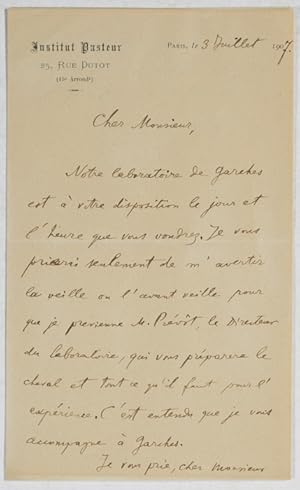 Institut Pasteur
25, RUE DUTOT
(15e Arrondt)
PARIS, LE 3 Juillet 1907.
Cher Monsieur,
Notre laboratoire de Garches
est à votre disposition le jour et
l'heure que vous voudrez. Je vous
prierais seulement de m'avertir
la veille ou l'avant veille pour
que je previenne M. Prévôt, le Directeur
du laboratoire, qui vous préparera le
cheval et tout ce qu'il faut pour l'
expérience. C'est entendu que je vous
accompagne à Garches.
Je vous prie, cher Monsieur